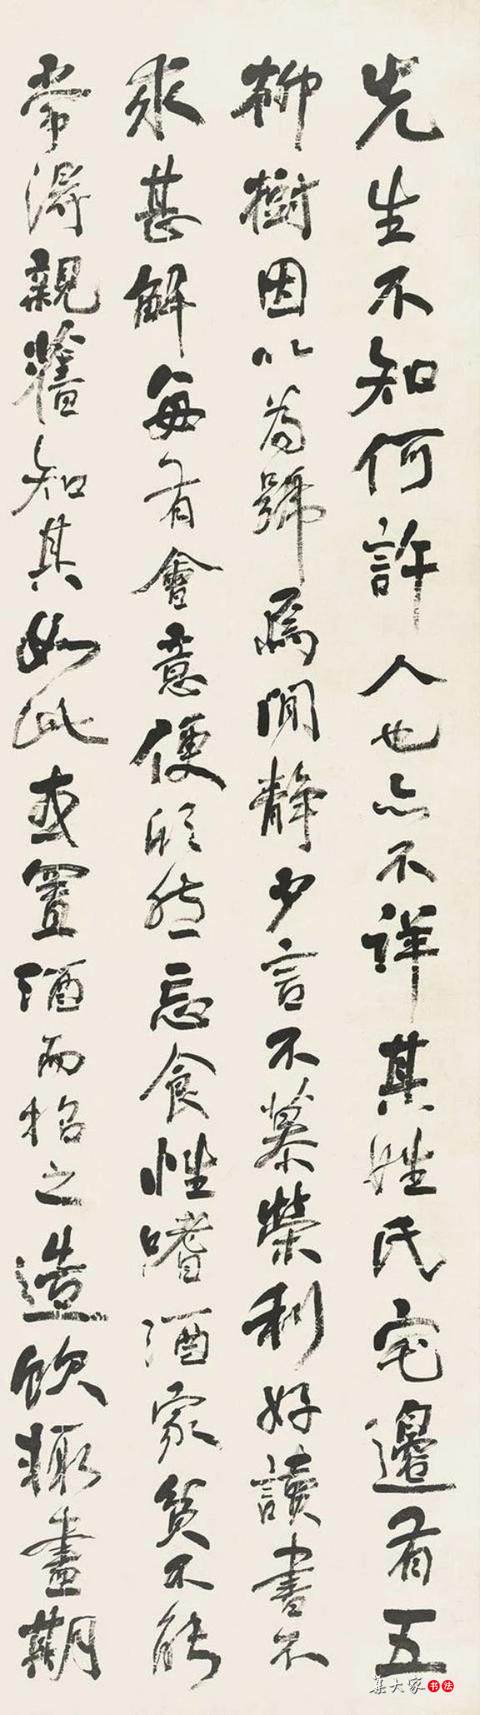 先生不知何許人也亦不詳其姓氏宅邊有五
柳樹因以為號焉閒靜少言不慕榮利好讀書不
求甚解每有會意便欣然忘食性嗜酒家貧不能
常得親舊知其如此或置酒而招之造飲輒盡期
集大家书法